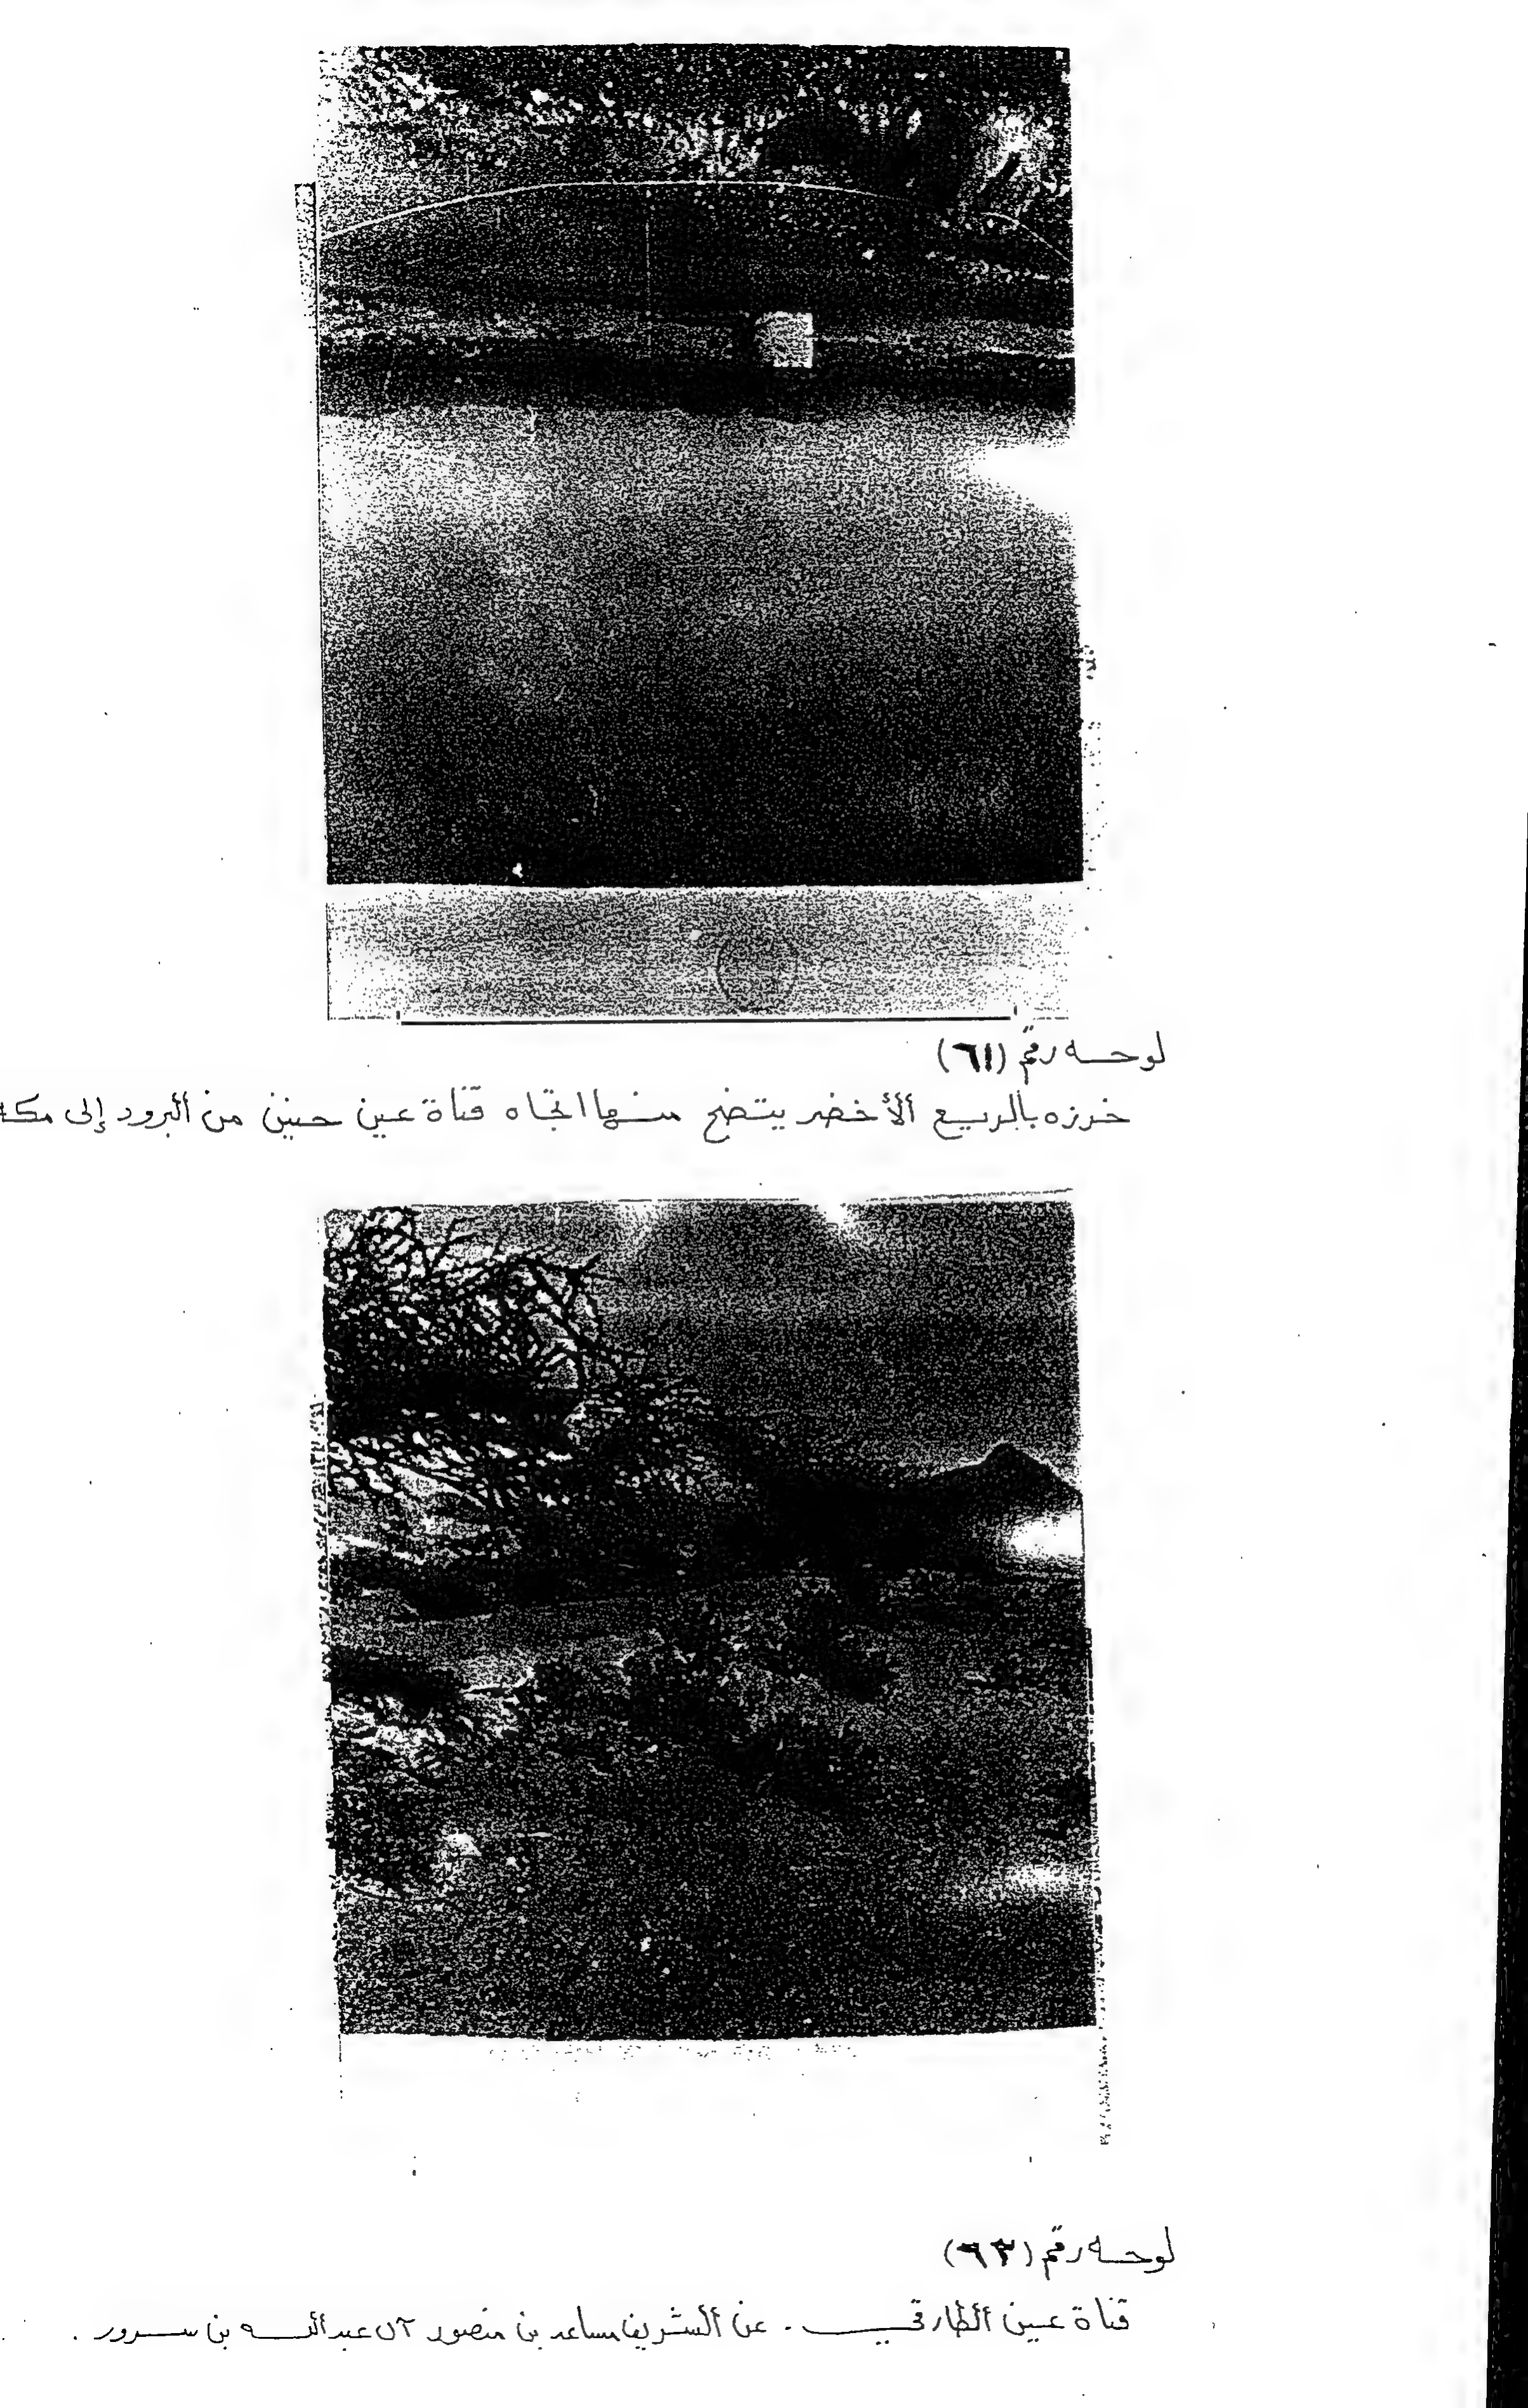 لوحه رقم (٦١)
خرزه بالريع الأخضر يتضح منها اتجاه قناة عين حنين من البرود إلى مكة
لوحه رقم (٦٢)
قناة عين الطارقي . عن الشريف مساعد بن منصور آل عبدالله بن سرور .